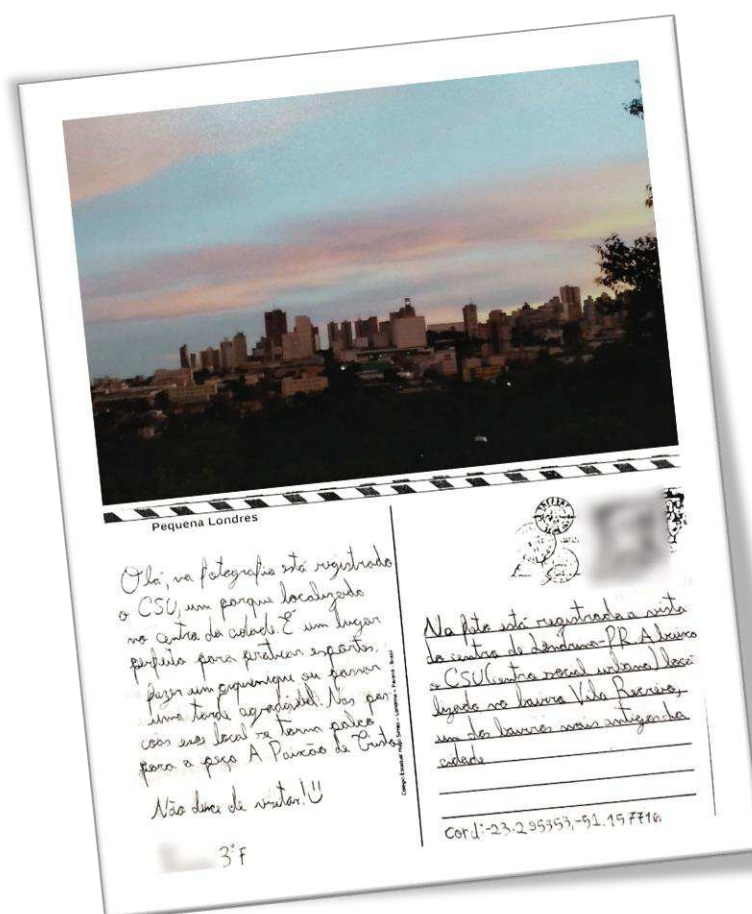 Pequena Londres
Olá, na fotografia está registrado
o CSU, um parque localizado
no centro da cidade. É um lugar
perfeito para praticar esportes,
fazer um piquenique ou passar
uma tarde agradável. Nas pas
coas esse local se torna palco
para a peça A Paixão de Cristo
Não deixe de visitar!
3°F
Na foto está registrada a vista
do centro de Londrina-PR. Abaixo
o CSU (centro social urbano) loca
lizado no bairro Vila Recreio,
um dos bairros mais antigos da
cidade
Cord:-23.295353,-51.157716